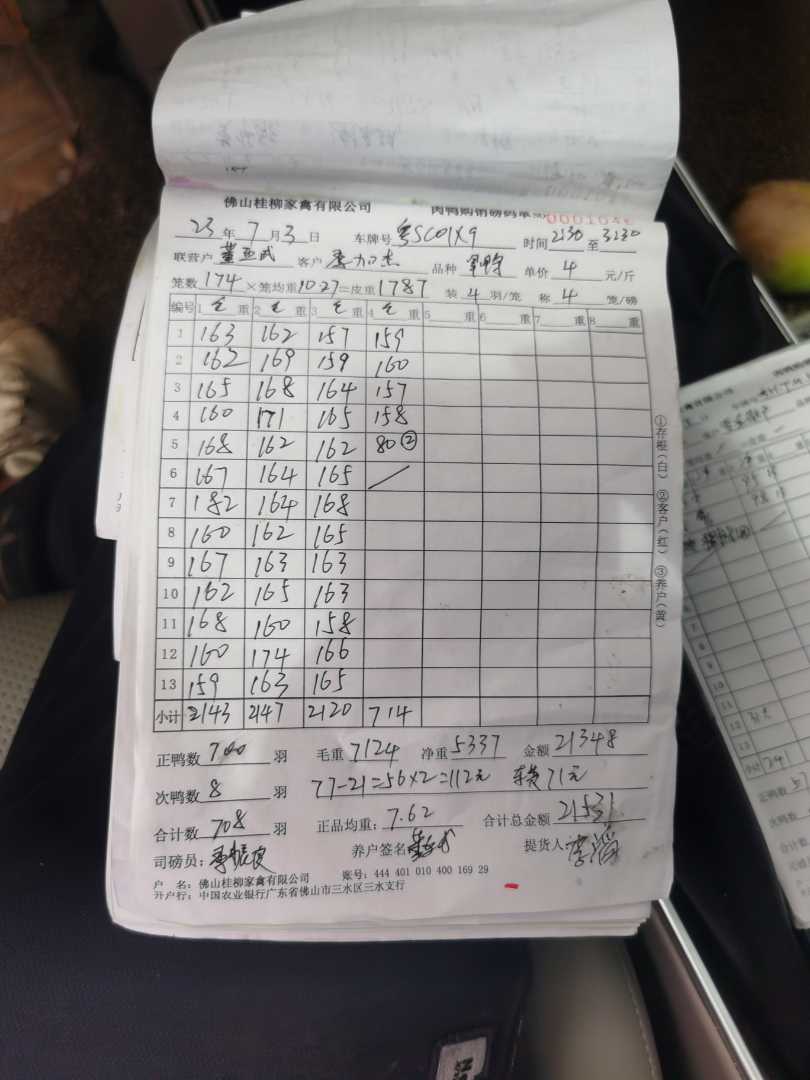 佛山桂柳家禽有限公司 肉鸭购销磅码单
23年7月3日 车牌号粤SC01X9 时间2130至3230
联营户 客户 品种 单价4元/斤
笼数174×笼均重1027=皮重1787 装4羽/笼 称4笼/磅
编号 1毛重 2毛重 3毛重 4毛重 5重 6重 7重 8重
1 163 162 157 159
2 162 169 159 160
3 165 168 164 157
4 160 171 165 158
5 168 162 162 80②
6 167 164 165
7 182 164 168
8 160 162 165
9 167 163 163
10 162 165 163
11 168 160 158
12 160 174 166
13 159 163 165
小计 2143 2147 2120 714
正鸭数700羽 毛重7124 净重5337 金额21348
次鸭数8羽 77-21=56×2=112元 71元
合计数708羽 正品均重:7.62 合计总金额21531
司磅员: 养户签名 提货人
户 名:佛山桂柳家禽有限公司 账号:444 401 010 400 169 29
开户行:中国农业银行广东省佛山市三水区三水支行
①存根(白) ②客户(红) ③养户(黄)